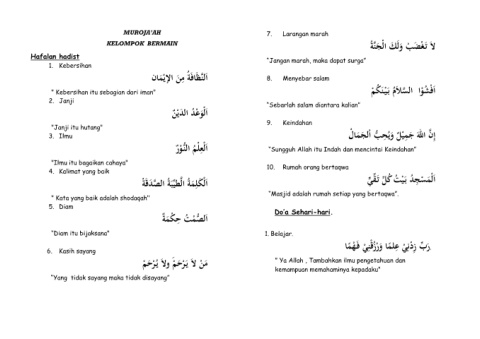 MUROJA'AH
KELOMPOK BERMAIN
Hafalan hadist
1. Kebersihan
اَلنَّظَافَةُ مِنَ الْإِيْمَان
" Kebersihan itu sebagian dari iman"
2. Janji
اَلْوَعْدُ الدَّيْنُ
"Janji itu hutang"
3. Ilmu
اَلْعِلْمُ النُّوْرُ
"Ilmu itu bagaikan cahaya"
4. Kalimat yang baik
اَلْكَلِمَةُ الطَّيِّبَةُ الصَّدَقَةُ
" Kata yang baik adalah shodaqah"
5. Diam
اَلصُّمْتُ حِكْمَةٌ
"Diam itu bijaksana"
6. Kasih sayang
مَنْ لاَ يَرْحَمْ ولاَ يُرْحَمْ
"Yang tidak sayang maka tidak disayang"
7. Larangan marah
لاَ تَغْضَبْ وَلَكَ الْجَنَّةُ
"Jangan marah, maka dapat surga"
8. Menyebar salam
اَفْشُوْا السَّلاَمُ بَيْنَكُمْ
"Sebarlah salam diantara kalian"
9. Keindahan
إِنَّ اللهَ جَمِيْلٌ وَيُحِبُّ الْجَمَالُ
"Sungguh Allah itu Indah dan mencintai Keindahan"
10. Rumah orang bertaqwa
اَلْمَسْجِدُ بَيْتُ كُلِّ تَقِيٍّ
"Masjid adalah rumah setiap yang bertaqwa".
Do'a Sehari-hari.
1. Belajar.
رَبِّ زِدْنِيْ عِلْمًا وَرْزُقْنِيْ فَهْمًا.
" Ya Allah , Tambahkan ilmu pengetahuan dan
kemampuan memahaminya kepadaku"